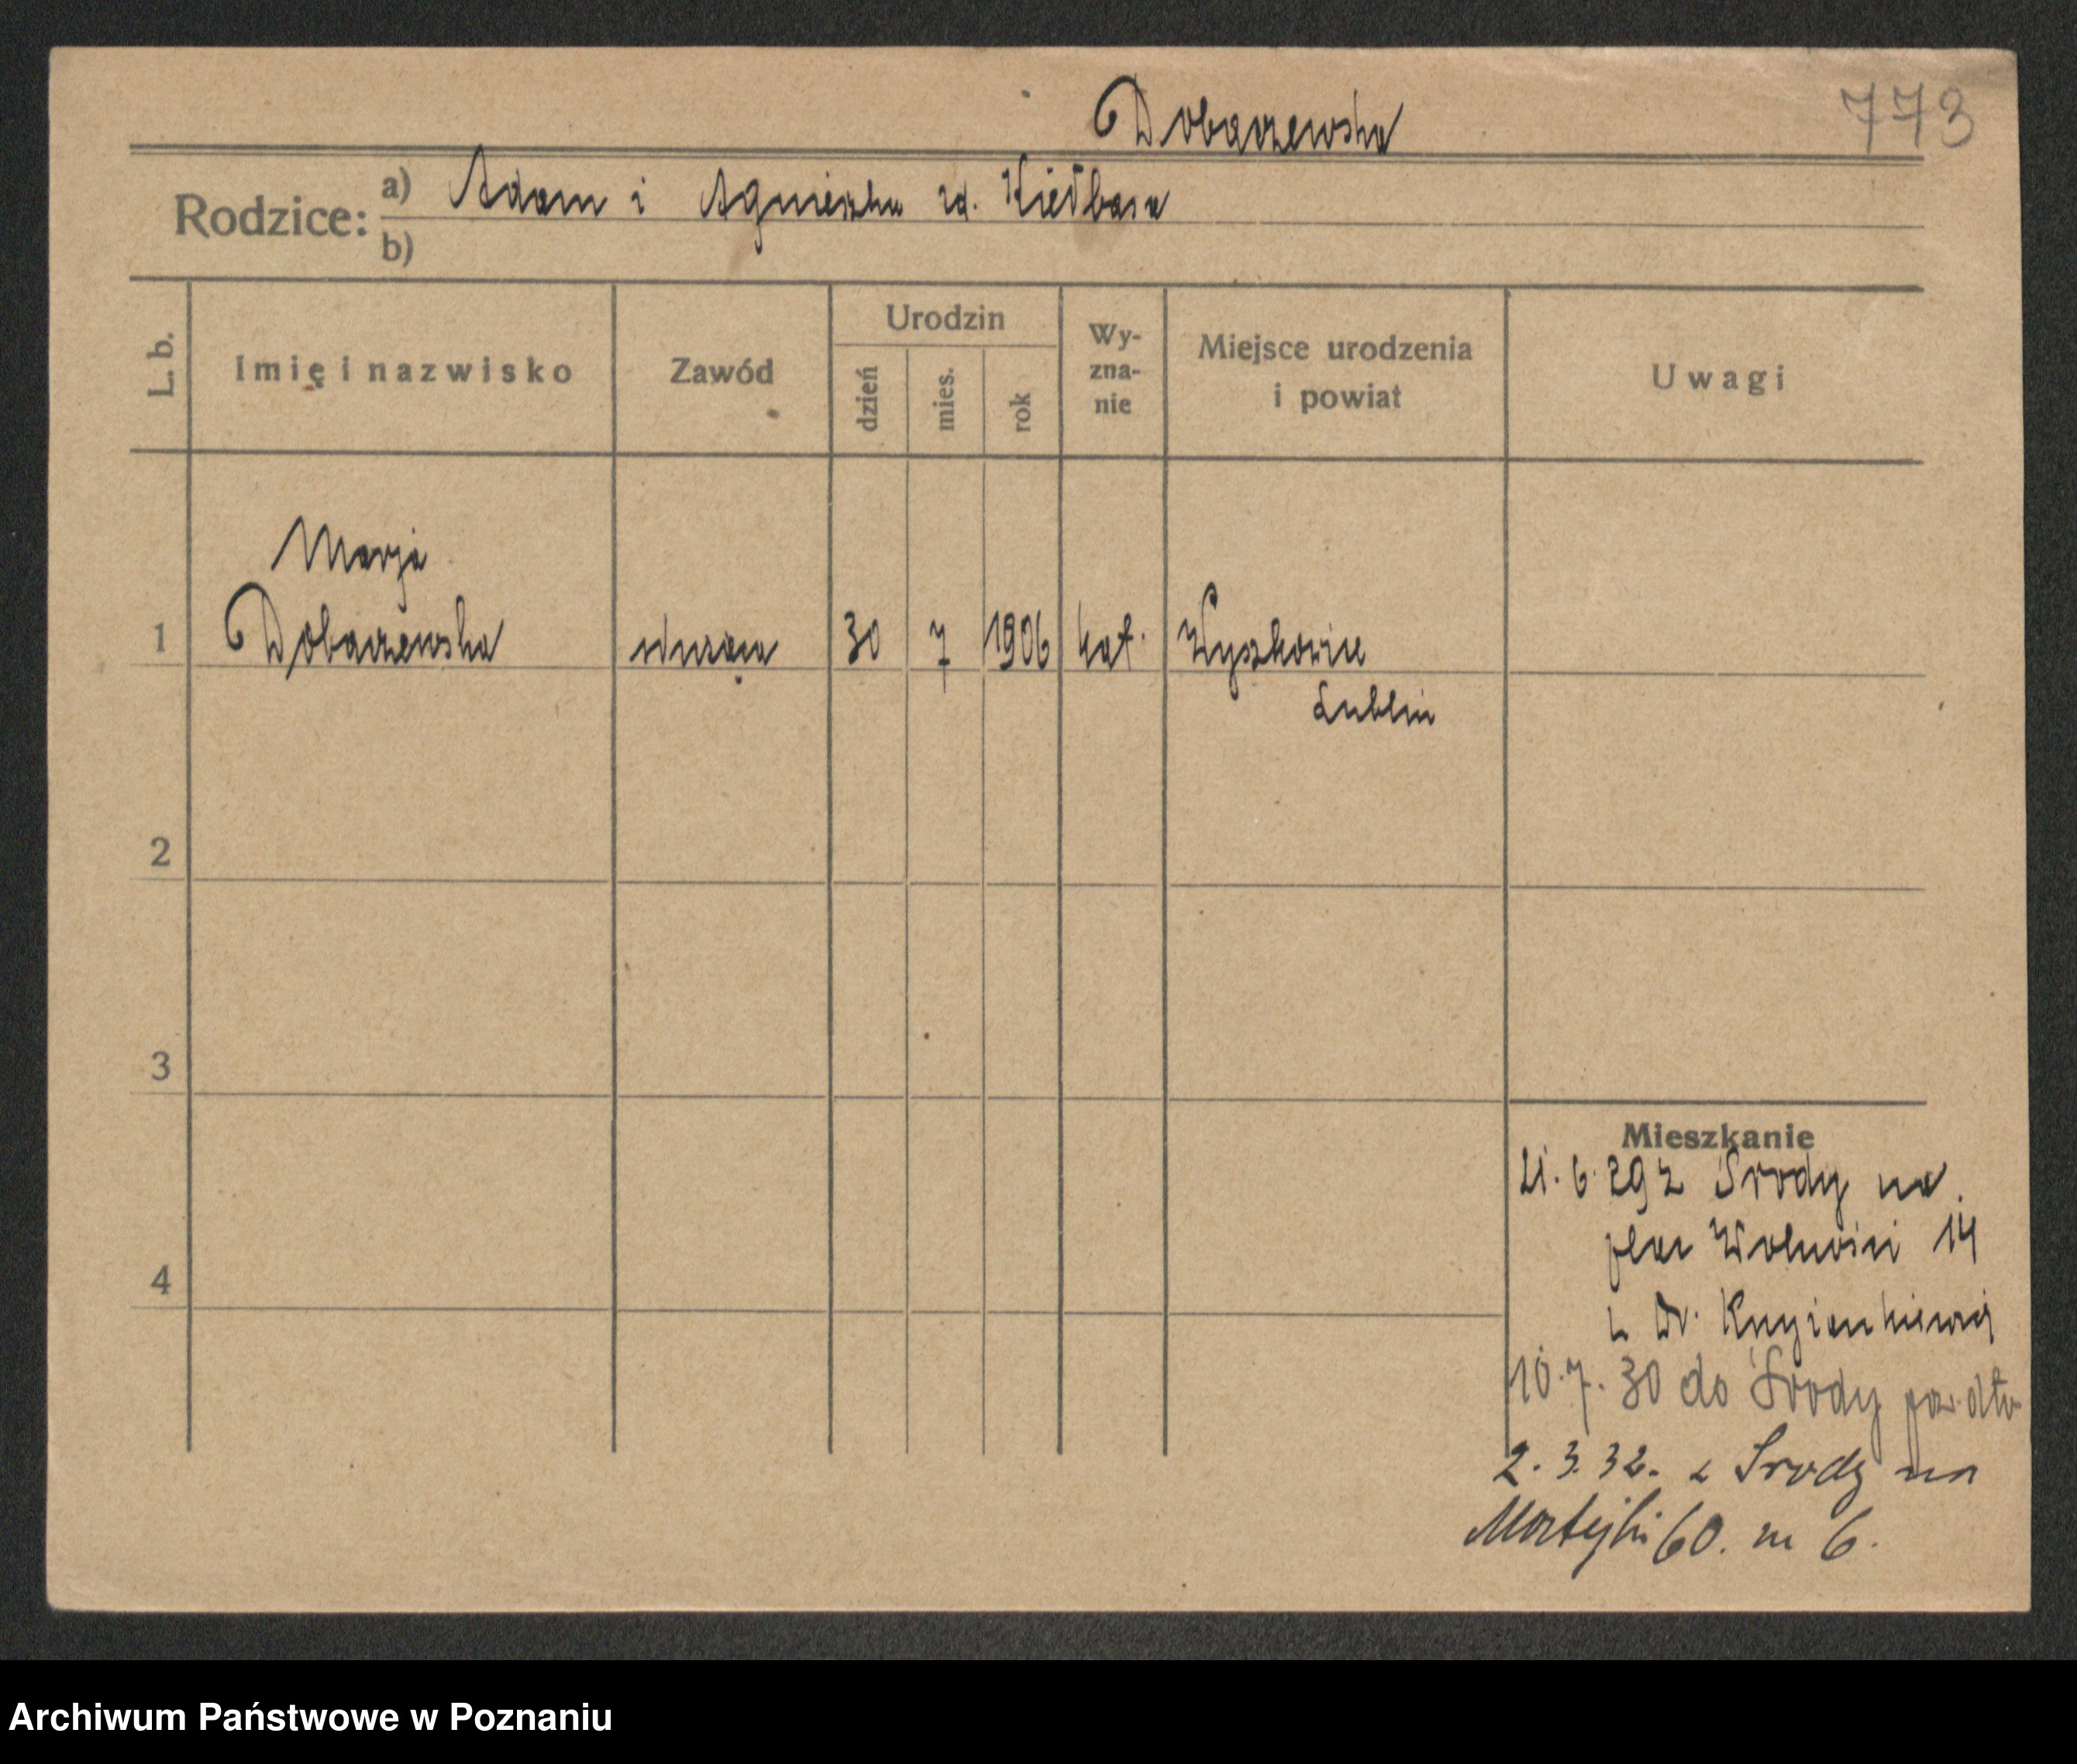 Dobaczewska
773
Rodzice: a) Adam i Agnieszka zd. Kiełbasa
b)
L. b.
Imię i nazwisko
Zawód
Urodzin
dzień
mies.
rok
Wy-
zna-
nie
Miejsce urodzenia
i powiat
Uwagi
Marja
1 Dobaczewska służąca 30 7 1906 kat. Wyszkowice
Lublin
2
3
4
Mieszkanie
21. 6. 29 z Środy na
plac Wolności 14
u Dr.
10. 7. 30 do Środy pow. dto
2. 3. 32. z Środy na
60. m 6.
Archiwum Państwowe w Poznaniu